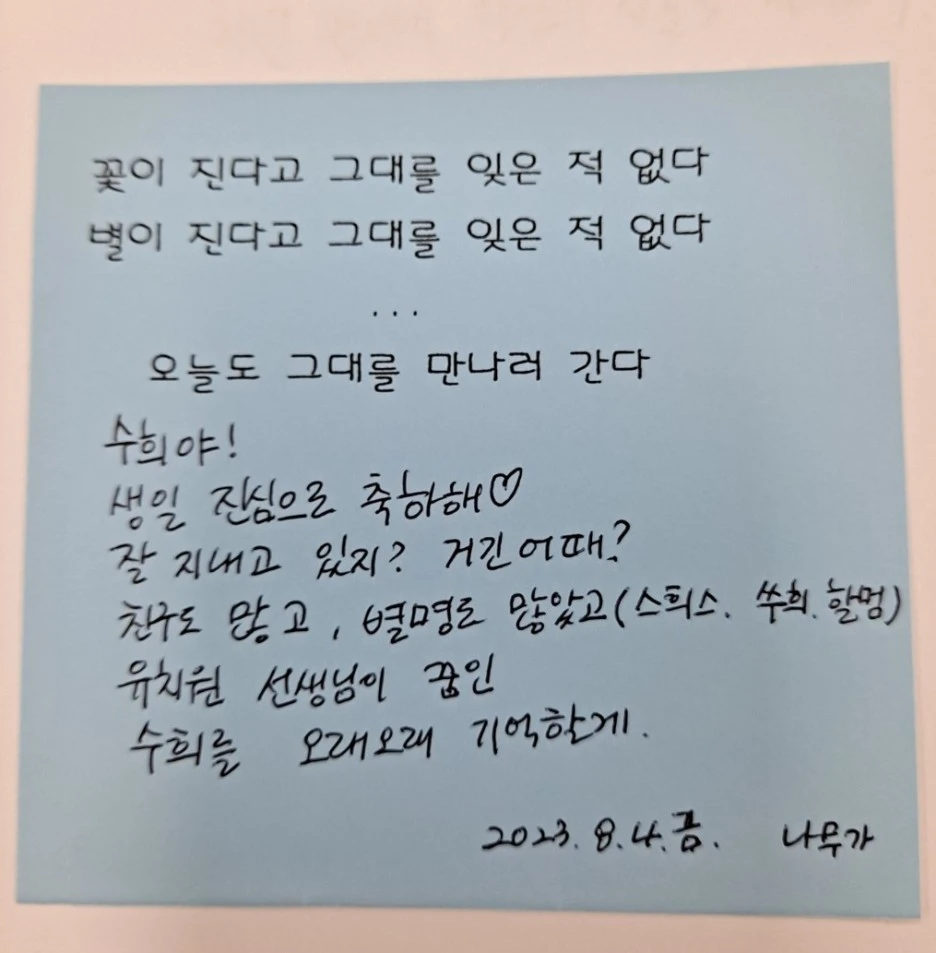 꽃이 진다고 그대를 잊은 적 없다
별이 진다고 그대를 잊은 적 없다
...
오늘도 그대를 만나러 간다
수희야!
생일 진심으로 축하해♡
잘 지내고 있지? 거긴 어때?
친구도 많고, 별명도 많았고(스희스. 쑤희. 할멈)
유치원 선생님이 꿈인
수희를 오래오래 기억할게.
2023. 8. 4. 금. 나무가